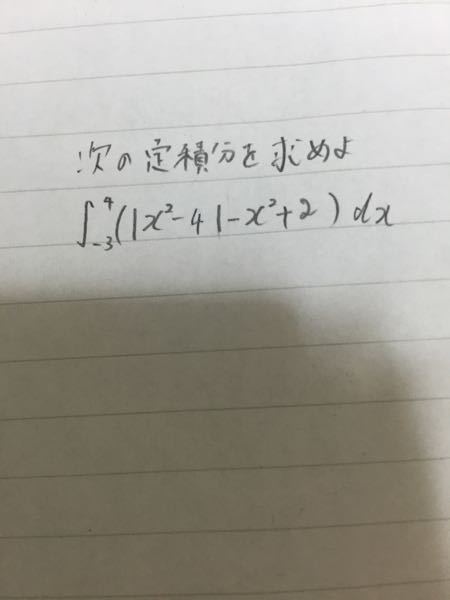 次の定積分を求めよ
∫₋₃⁴(|x²-4|-x²+2)dx